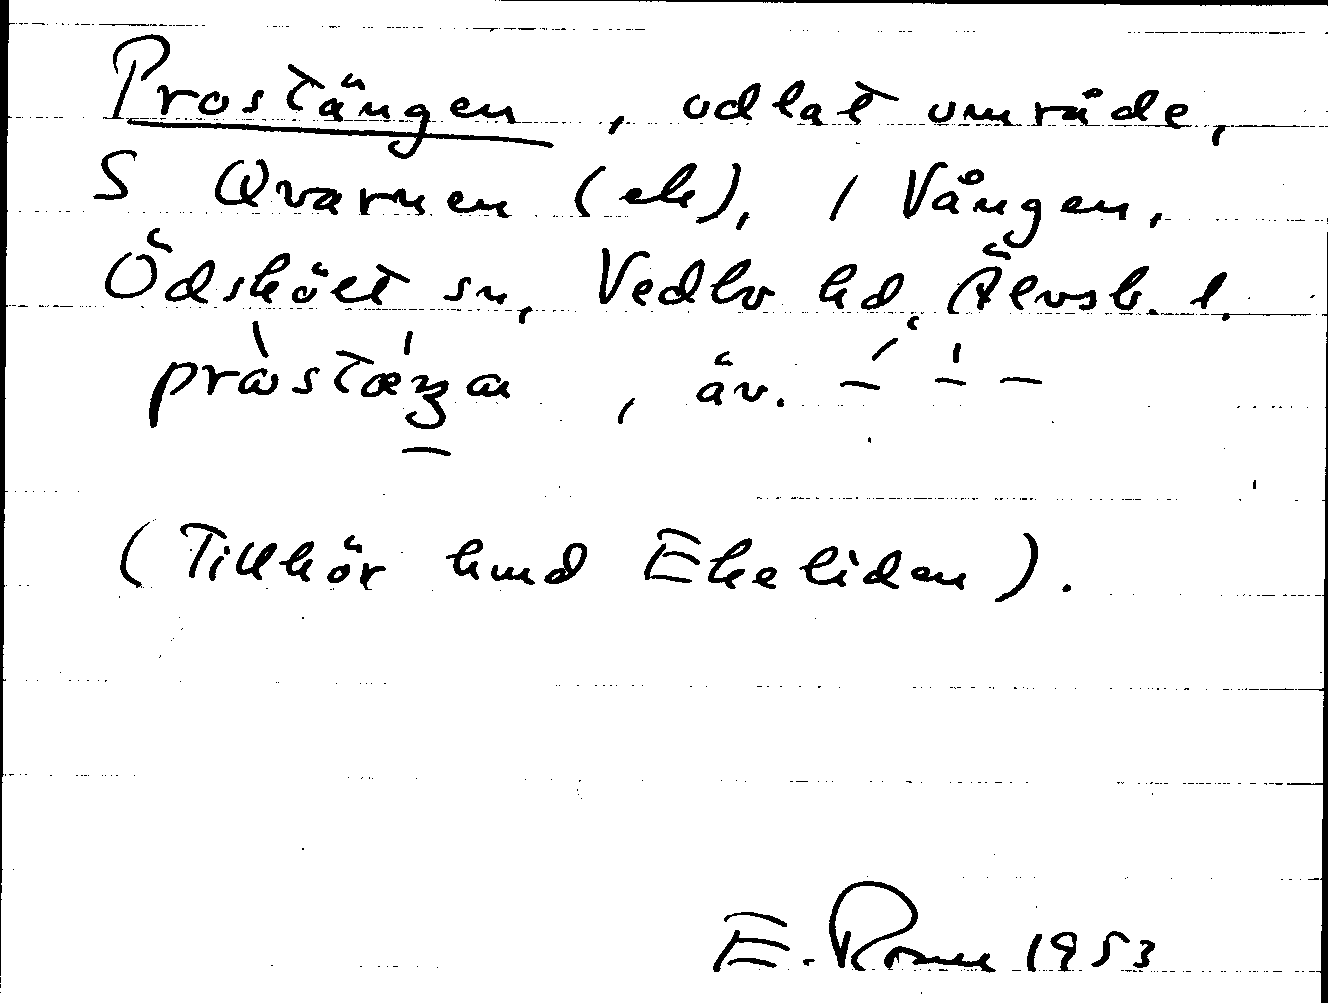 Prostängen, odlat område,
S Qvarnen (ek), / Vången,
Ödskölt sn, Vedbo hd, Älvsb. l.
pròstæŋa, äv. – – –
(Tillhör hmd Ekeliden).
E. 1953